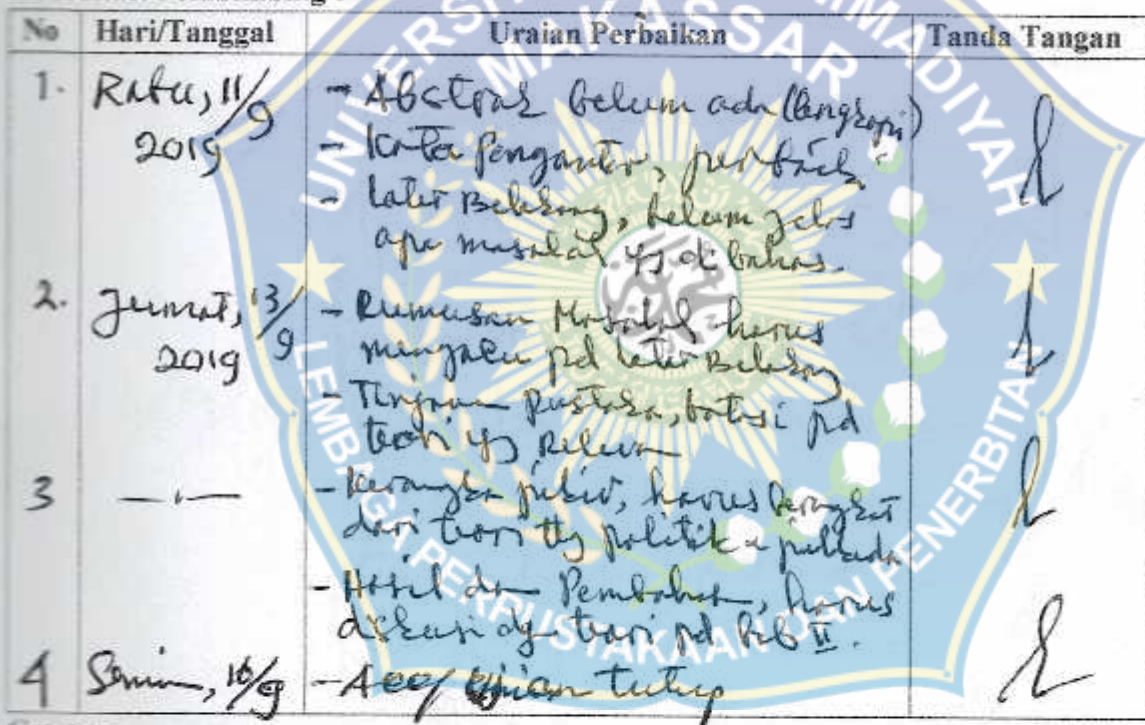 No Hari/Tanggal Uraian Perbaikan Tanda Tangan
1. Rabu, 11/9 2019
- Abstrak belum ada (lengkapi)
- Kata Pengantar, perbaiki
- Latar Belakang, belum jelas
apa masalah yg di bahas.
2. Jumat, 13/9 2019
- Rumusan Masalah harus
mengacu pd latar Belakang
- Tinjauan pustaka, batasi pd
teori yg relevan
3 —"—
- Kerangka pikir, harus berangkat
dari teori ttg politik
- Hasil dan Pembahasan, harus
diskusi dgn teori pd bab II.
4 Senin, 16/9 - Acc/ Ujian tutup
UNIVERSITAS MUHAMMADIYAH
MAKASSAR
LEMBAGA PERPUSTAKAAN DAN PENERBITAN